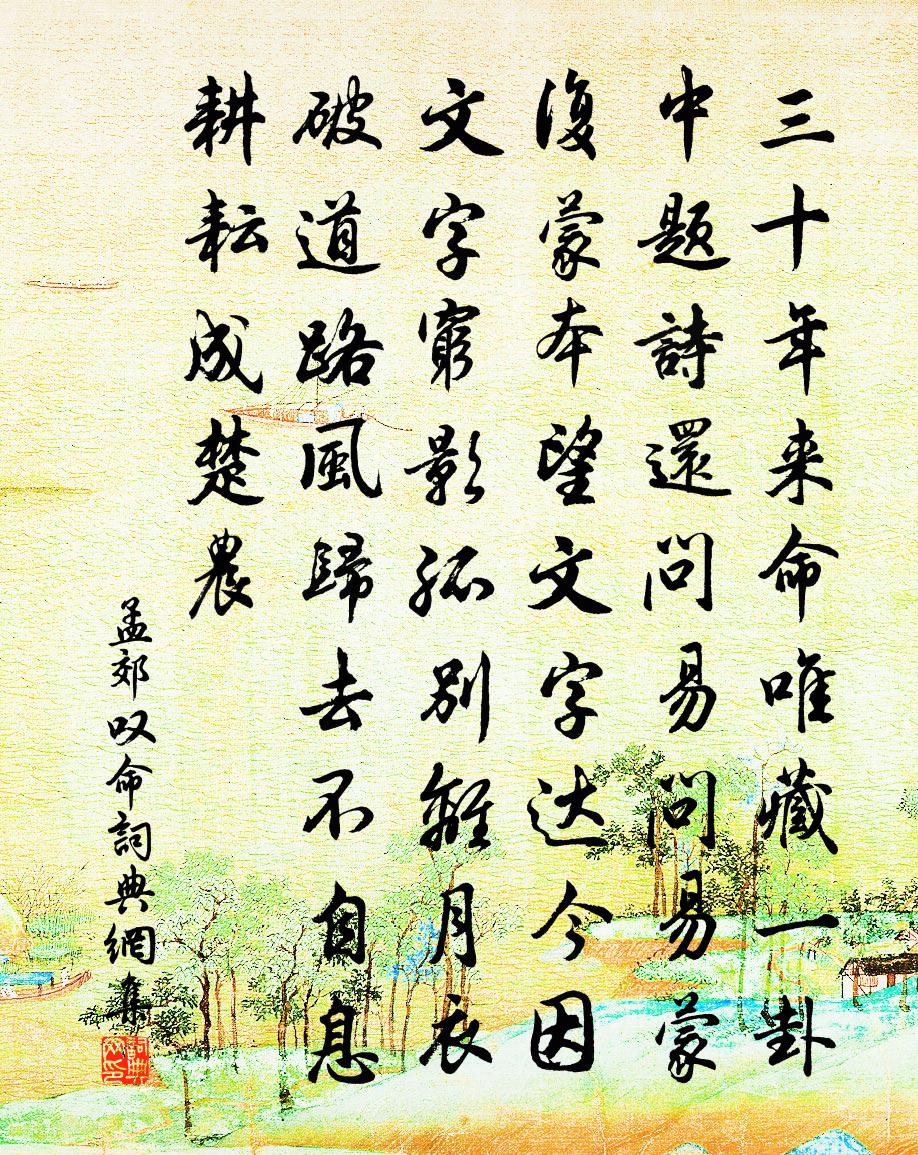 三十年来命唯藏一卦
中题詩還问易问易蒙
復蒙本望文字达今因
文字窮影孤别離月衣
破道路風歸去不自息
耕耘成楚農
孟郊叹命詞典網集